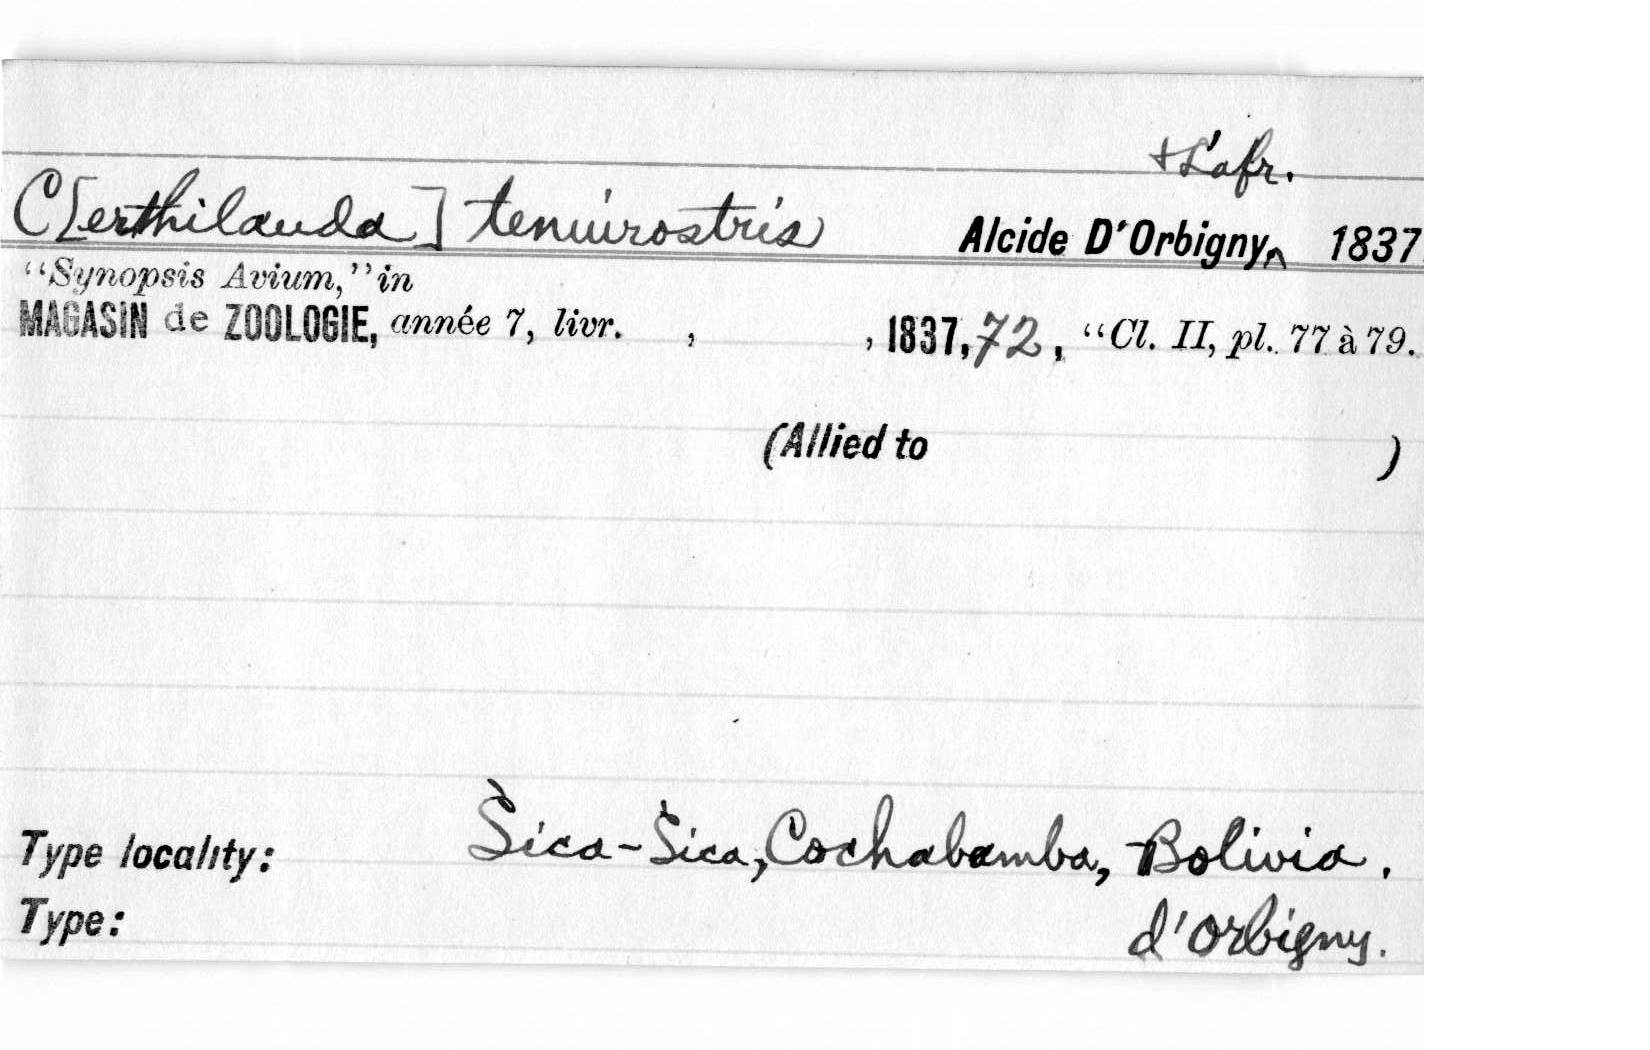 + Lafr.
C[erthilauda] tenuirostris Alcide D'Orbigny‸ 1837
“Synopsis Avium,” in
MAGASIN de ZOOLOGIE, année 7, livr. , , 1837, 72, “Cl. II, pl. 77 à 79.
(Allied to )
Type locality: Sica-Sica, Cochabamba, Bolivia.
Type: d'Orbigny.